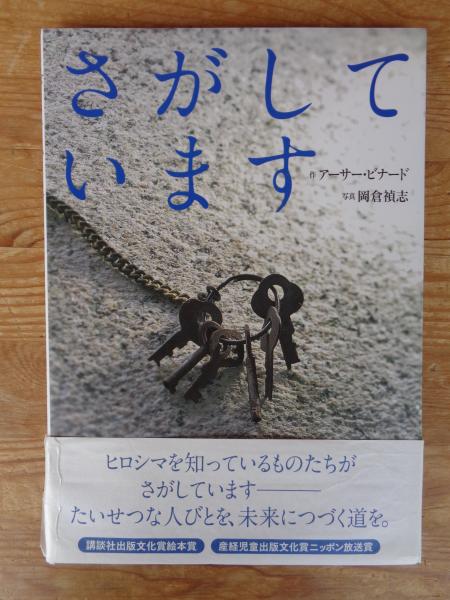 さがして
います
作 アーサー・ビナード
写真 岡倉禎志
ヒロシマを知っているものたちが
さがしています――
たいせつな人びとを、未来につづく道を。
講談社出版文化賞絵本賞 産経児童出版文化賞ニッポン放送賞